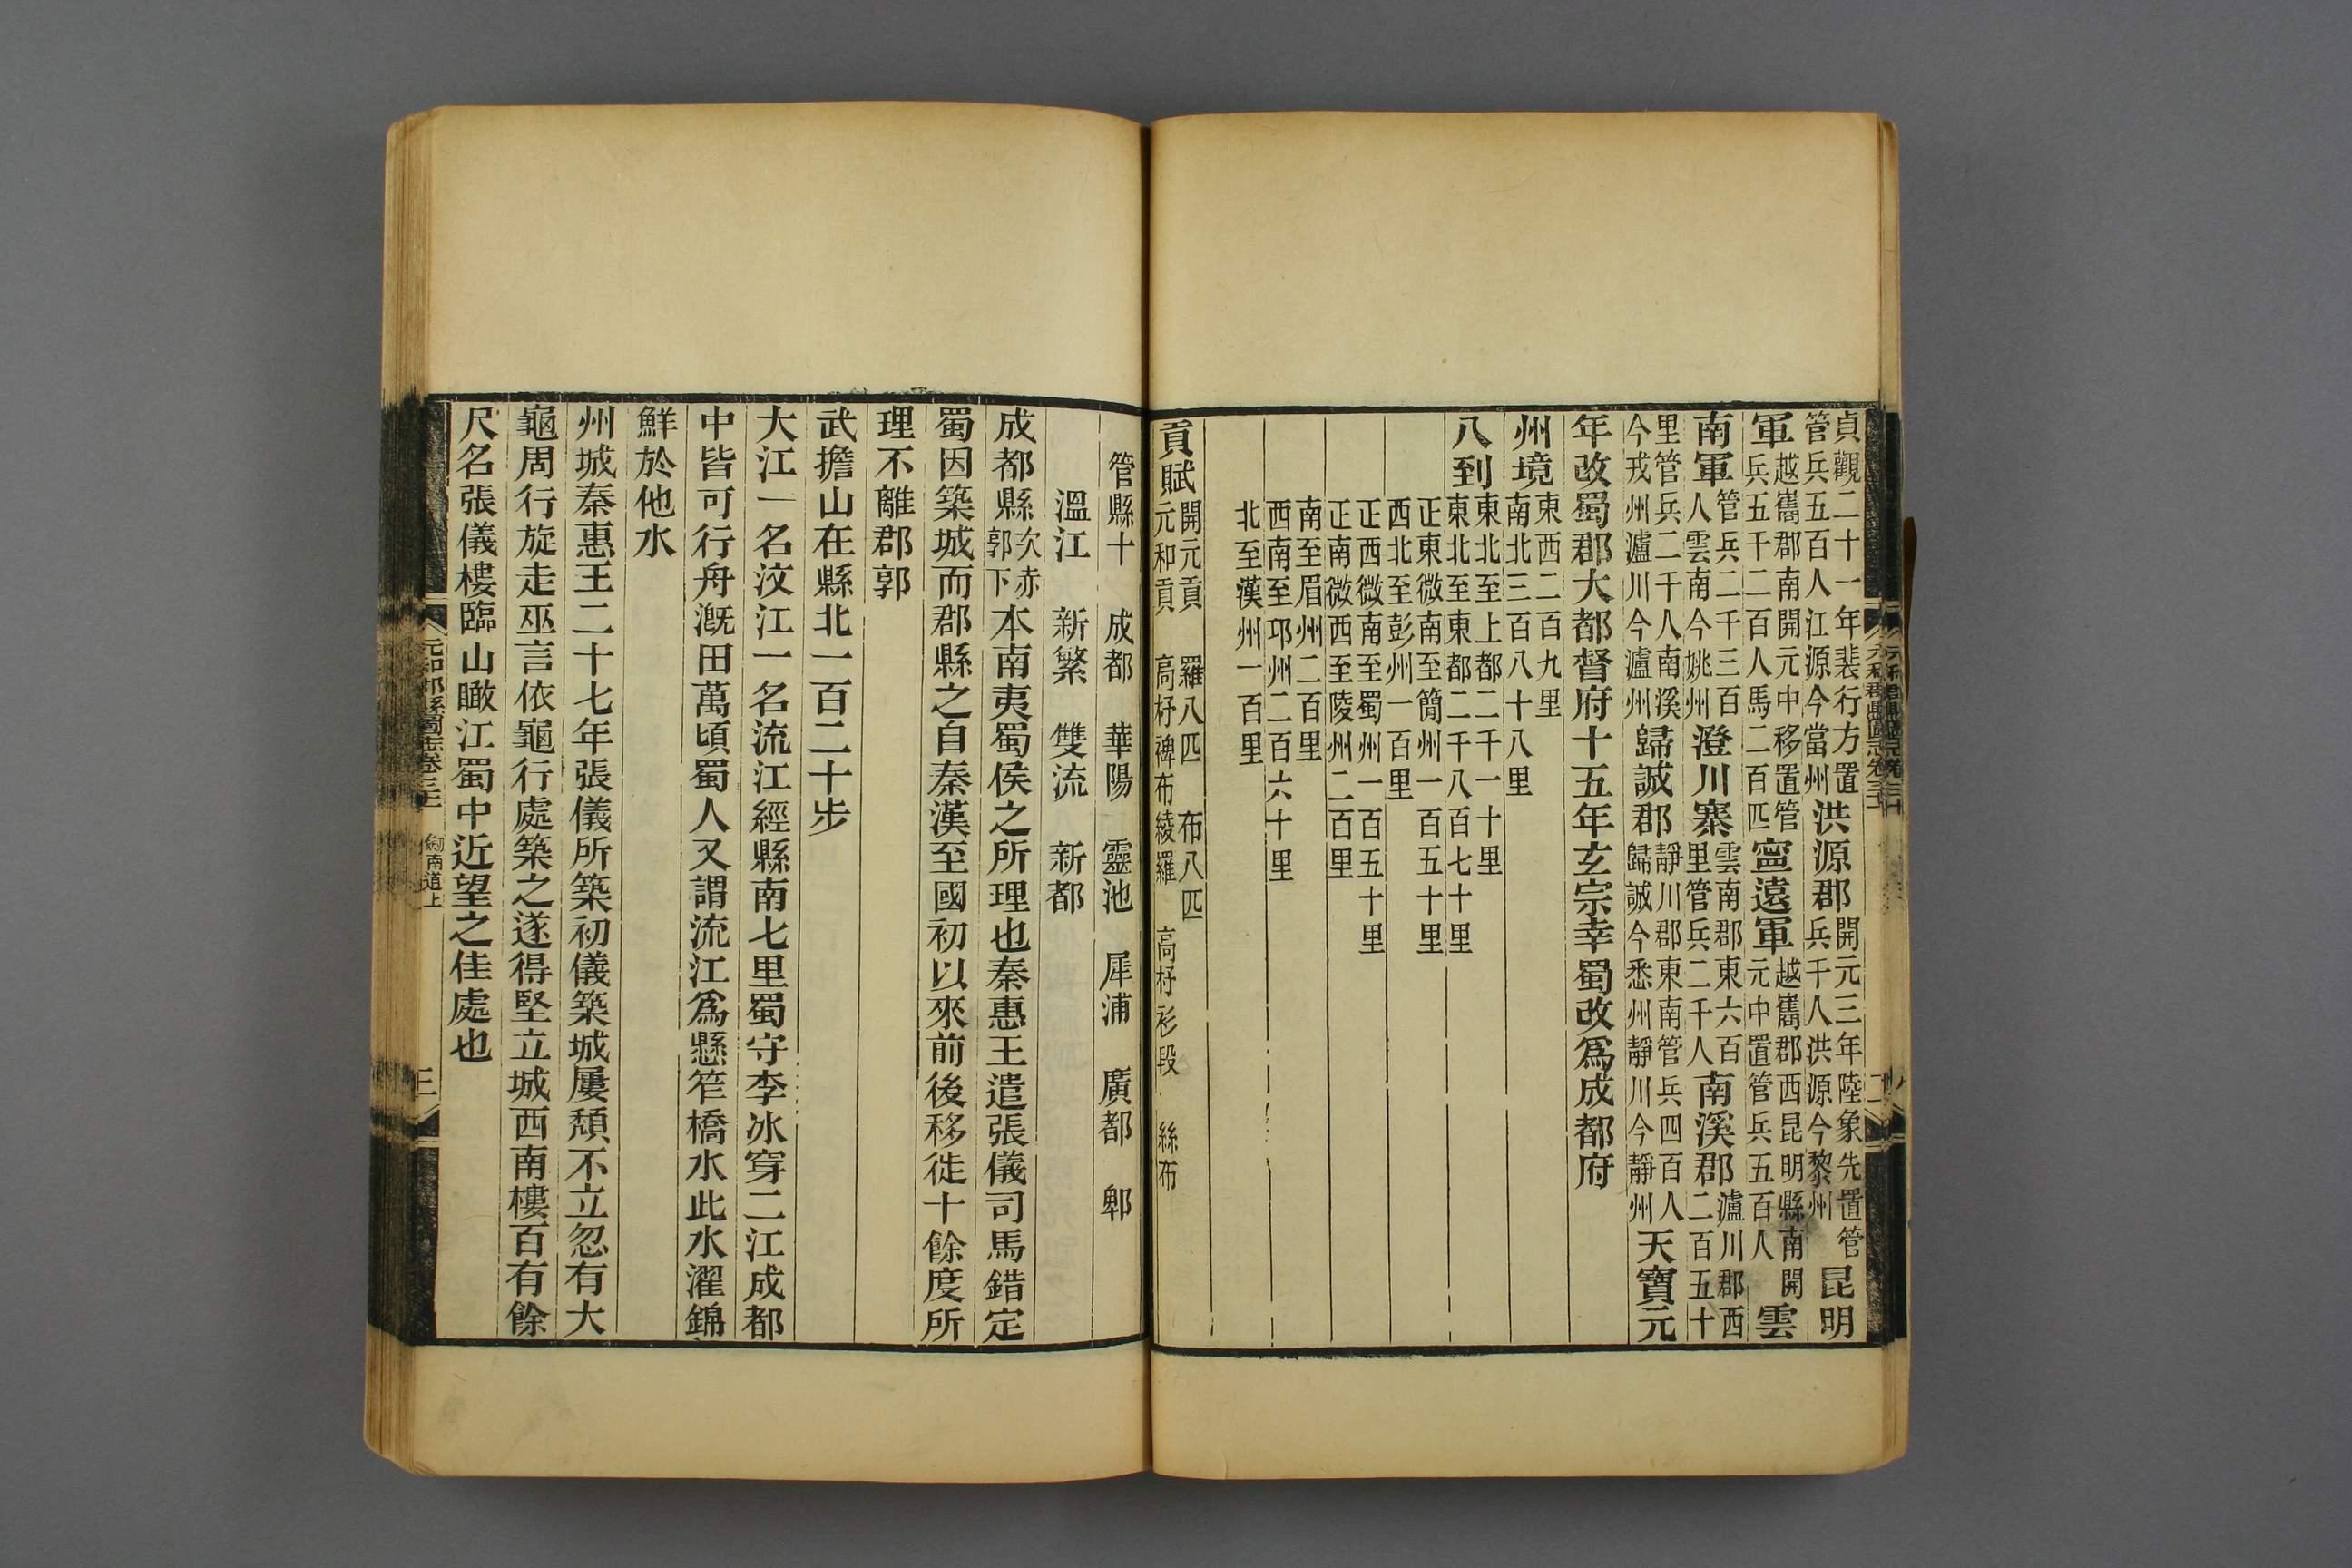 貞觀二十一年裴行方置管兵五百人江源今當州洪源郡開元三年陸象先置管兵千人洪源今黎州昆明
軍越巂郡南開元中移置管兵五千二百人馬二百匹寧遠軍越巂郡西昆明縣南開元中置管兵五百人雲
南軍管兵二千三百人雲南今姚州澄川寨雲南郡東六百里管兵二千人南溪郡瀘川郡西二百五十
里管兵二千人南溪今戎州瀘川今瀘州歸誠郡靜川郡東南管兵四百人歸誠今悉州靜川今靜州天寶元
年改蜀郡大都督府十五年玄宗幸蜀改爲成都府
州境東西二百九里南北三百八十八里
八到東北至上都二千一十里東北至東都二千八百七十里
正東微南至簡州一百五十里西北至彭州一百里
正西微南至蜀州一百五十里正南微西至陵州二百里
南至眉州二百里西南至邛州二百六十里
北至漢州一百里
貢賦開元貢 羅八匹 布八匹元和貢 高杼裨布綾羅 高杼衫段 絲布
元和郡縣圖志卷三十一
二
管縣十 成都 華陽 靈池 犀浦 廣都 郫
溫江 新繁 雙流 新都
成都縣次赤郭下本南夷蜀侯之所理也秦惠王遣張儀司馬錯定
蜀因築城而郡縣之自秦漢至國初以來前後移徙十餘度所
理不離郡郭
武擔山在縣北一百二十步
大江一名汶江一名流江經縣南七里蜀守李冰穿二江成都
中皆可行舟漑田萬頃蜀人又謂流江爲懸笮橋水此水濯錦
鮮於他水
州城秦惠王二十七年張儀所築初儀築城屢頹不立忽有大
龜周行旋走巫言依龜行處築之遂得堅立城西南樓百有餘
尺名張儀樓臨山瞰江蜀中近望之佳處也
元和郡縣圖志卷三十一 劒南道上
三